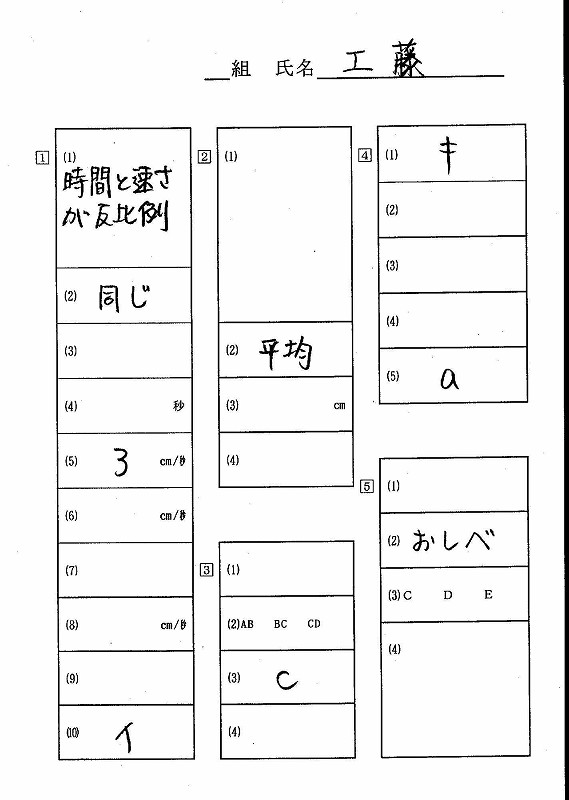 組 氏名 工藤
1
(1)
時間と速さ
が反比例
(2) 同じ
(3)
(4) 秒
(5) 3 cm/秒
(6) cm/秒
(7)
(8) cm/秒
(9)
(10) イ
2
(1)
(2) 平均
(3) cm
(4)
3
(1)
(2)AB BC CD
(3) C
(4)
4
(1) キ
(2)
(3)
(4)
(5) a
5
(1)
(2) おしべ
(3) C D E
(4)